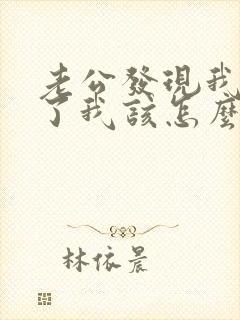 老公發現我
了我該怎麼
林依晨